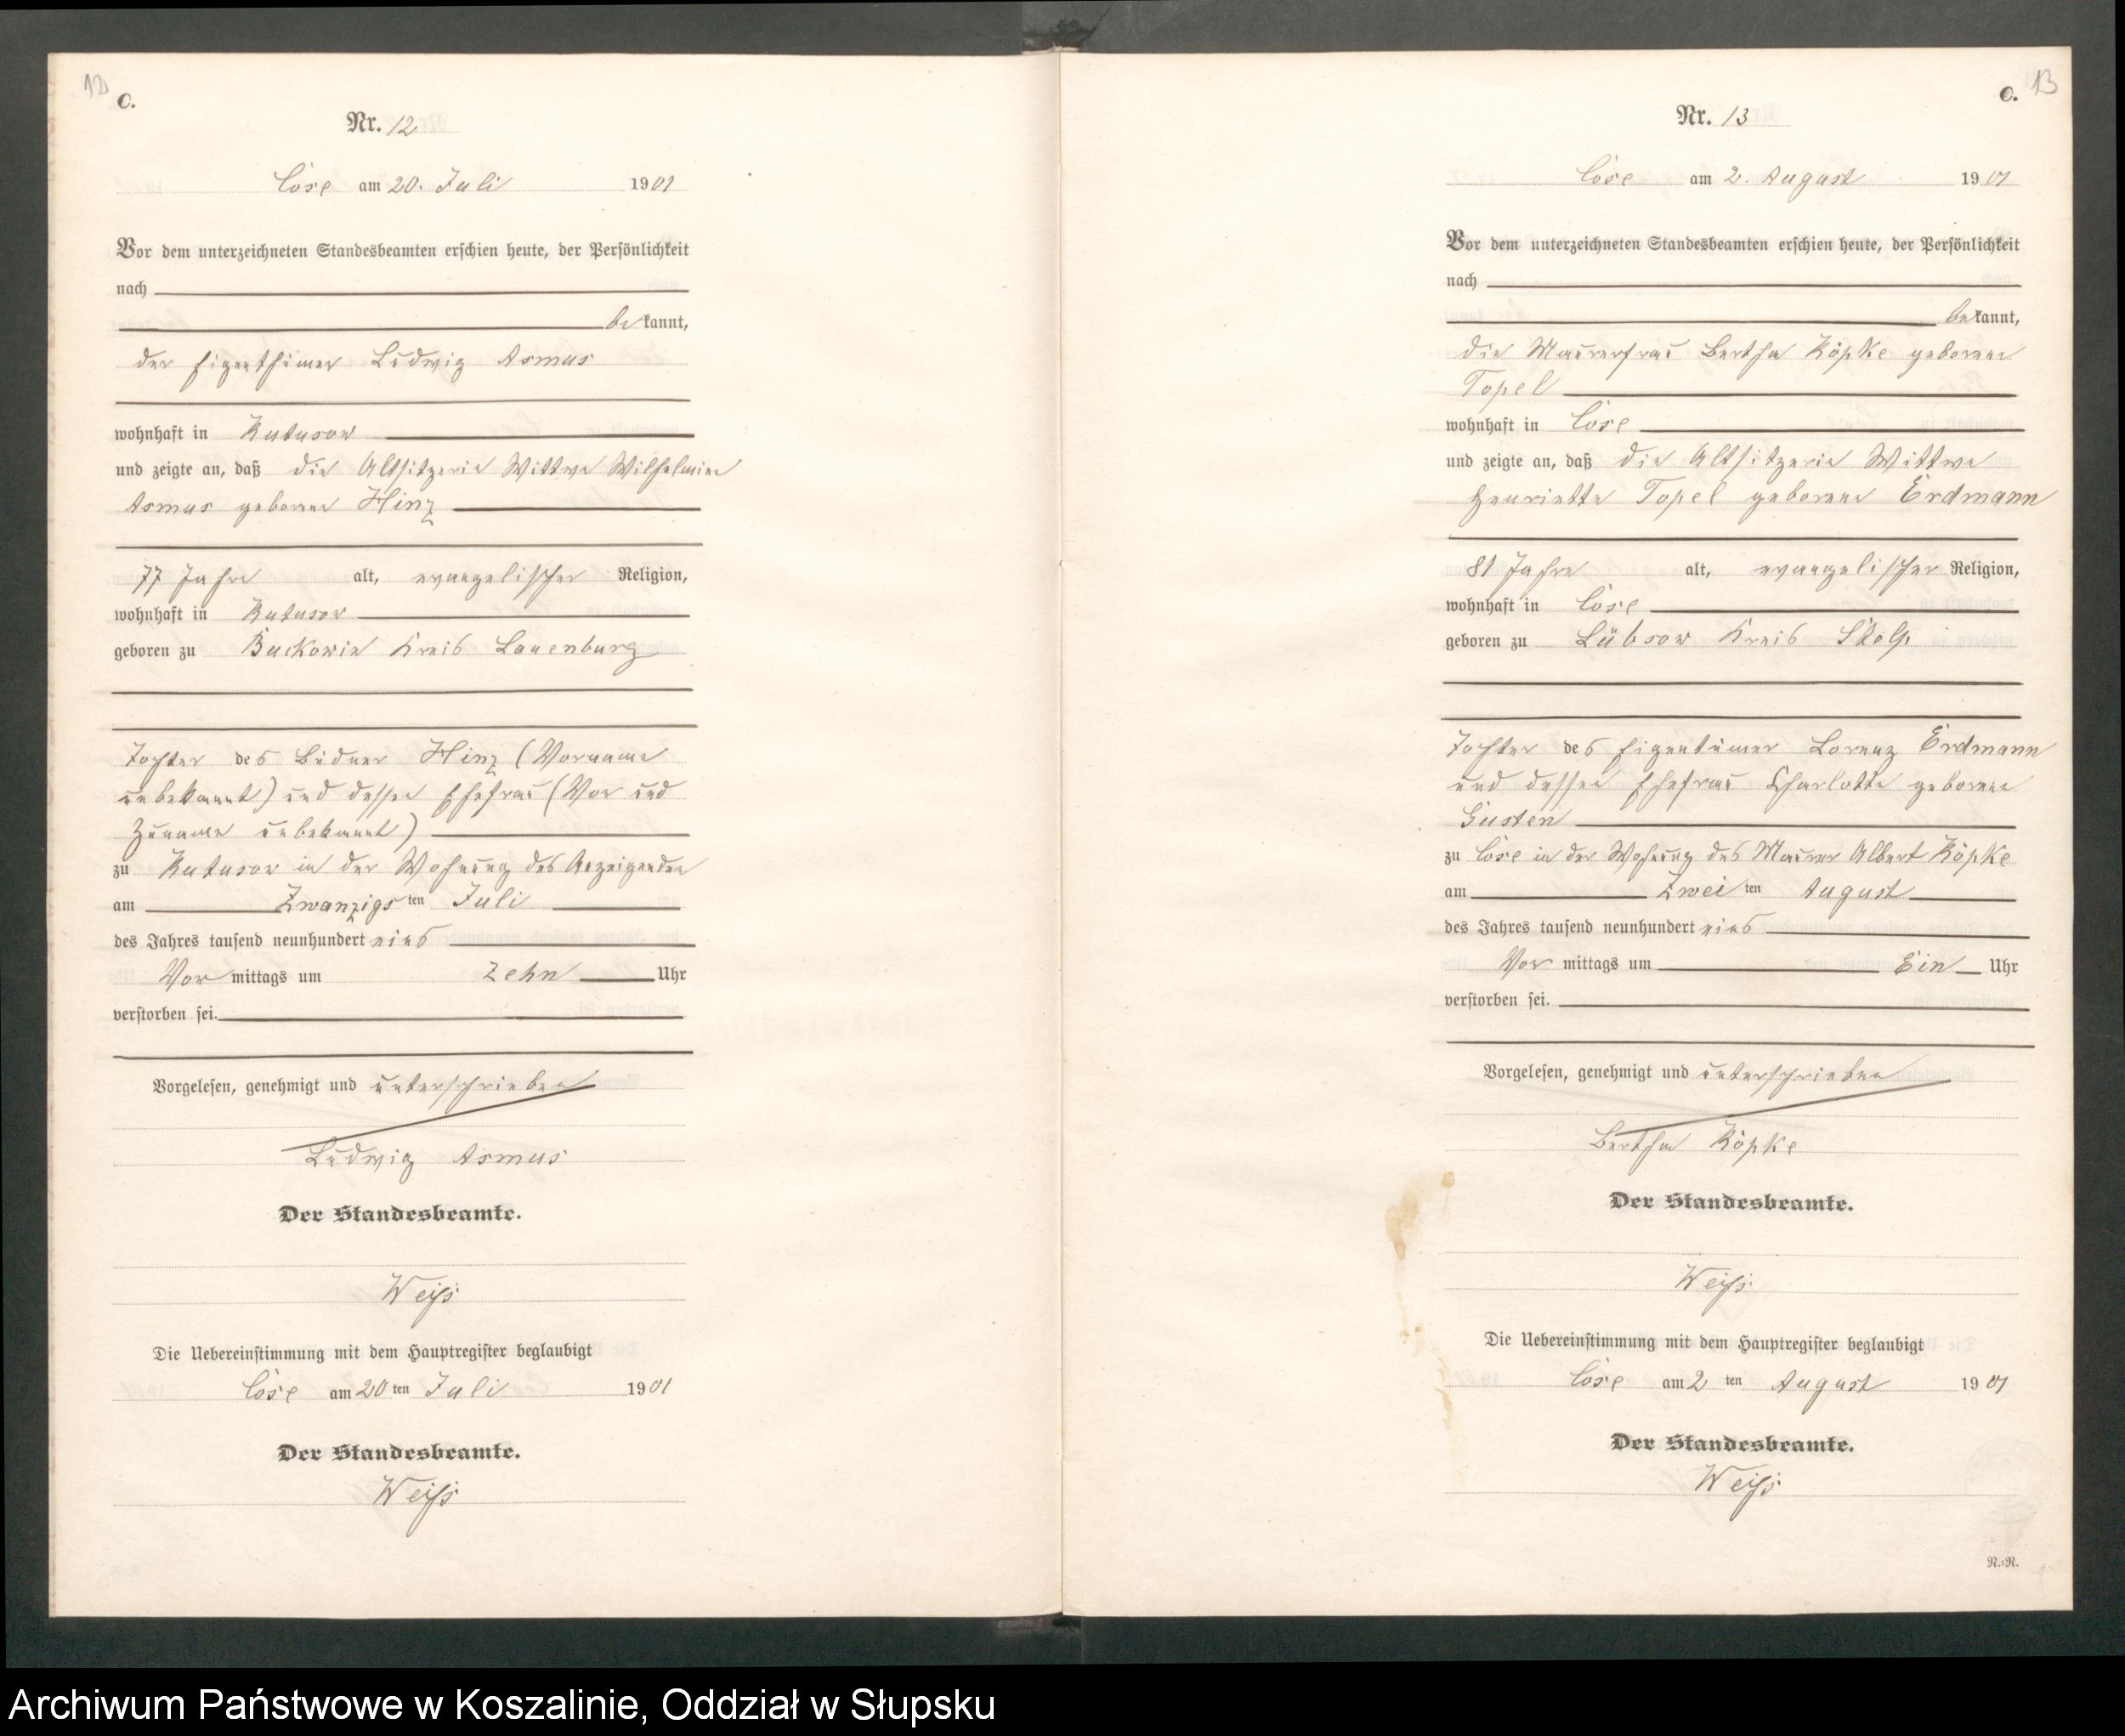 12
C.
Nr. 12
Cose am 20. Juli 1901
Vor dem unterzeichneten Standesbeamten erschien heute, der Persönlichkeit
nach
bekannt,
der Eigenthümer Ludwig Asmus
wohnhaft in Kutusow
und zeigte an, daß die Altsitzerin Wittwe Wilhelmine
Asmus geborene Hinz
77 Jahre alt, evangelischer Religion,
wohnhaft in Kutusow
geboren zu Buckowin Kreis Lauenburg
Tochter des Büdner Hinz (Vorname
unbekannt) und dessen Ehefrau (Vor und
Zuname unbekannt)
zu Kutusow in der Wohnung des Anzeigenden
am Zwanzigsten Juli
des Jahres tausend neunhundert eins
Vormittags um zehn Uhr
verstorben sei.
Vorgelesen, genehmigt und unterschrieben
Ludwig Asmus
Der Standesbeamte.
Weiß
Die Uebereinstimmung mit dem Hauptregister beglaubigt
Cose am 20ten Juli 1901
Der Standesbeamte.
Weiß
13
C.
Nr. 13
Cose am 2. August 1901
Vor dem unterzeichneten Standesbeamten erschien heute, der Persönlichkeit
nach
bekannt,
die Maurerfrau Bertha Köpke geborene
Topel
wohnhaft in Cose
und zeigte an, daß die Altsitzerin Wittwe
Henriette Topel geborene Erdmann
81 Jahre alt, evangelischer Religion,
wohnhaft in Cose
geboren zu Lübsow Kreis Stolp
Tochter des Eigentümer Lorenz Erdmann
und dessen Ehefrau Charlotte geborene
Gusten
zu Cose in der Wohnung des Maurer Albert Köpke
am Zweiten August
des Jahres tausend neunhundert eins
Vormittags um Ein Uhr
verstorben sei.
Vorgelesen, genehmigt und unterschrieben
Bertha Köpke
Der Standesbeamte.
Weiß
Die Uebereinstimmung mit dem Hauptregister beglaubigt
Cose am 2ten August 1901
Der Standesbeamte.
Weiß
N.=N.
Archiwum Państwowe w Koszalinie, Oddział w Słupsku